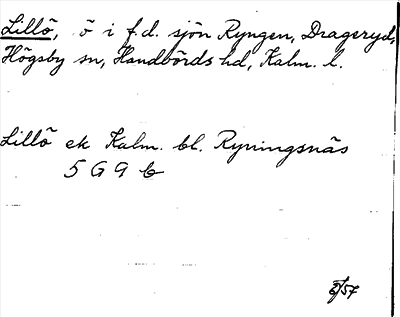 Lillö, ö i f.d. sjön Ryngen, Drageryd,
Högsby sn, Handbörds hd, Kalm. l.
Lillö ek Kalm. bl. Ryningsnäs
5 G 9 b